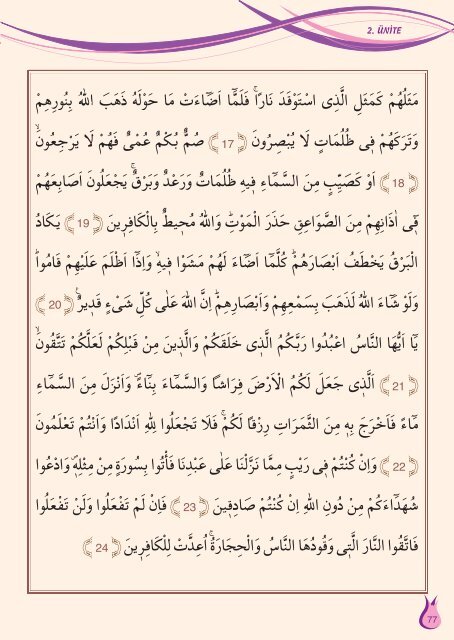 2. ÜNİTE
مَثَلُهُمْ كَمَثَلِ الَّذِى اسْتَوْقَدَ نَارًاۚ فَلَمَّٓا اَضَٓاءَتْ مَا حَوْلَهُ ذَهَبَ اللّٰهُ بِنُورِهِمْ
وَتَرَكَهُمْ فِى ظُلُمَاتٍ لَا يُبْصِرُونَ ﴿17﴾ صُمٌّ بُكْمٌ عُمْىٌ فَهُمْ لَا يَرْجِعُونَۙ
﴿18﴾ اَوْ كَصَيِّبٍ مِنَ السَّمَٓاءِ فِيهِ ظُلُمَاتٌ وَرَعْدٌ وَبَرْقٌۚ يَجْعَلُونَ اَصَابِعَهُمْ
فِٓى اٰذَانِهِمْ مِنَ الصَّوَاعِقِ حَذَرَ الْمَوْتِۜ وَاللّٰهُ مُحِيطٌ بِالْكَافِرِينَ ﴿19﴾ يَكَادُ
الْبَرْقُ يَخْطَفُ اَبْصَارَهُمْۜ كُلَّمَٓا اَضَٓاءَ لَهُمْ مَشَوْا فِيهِۙ وَاِذَٓا اَظْلَمَ عَلَيْهِمْ قَامُواۜ
وَلَوْ شَٓاءَ اللّٰهُ لَذَهَبَ بِسَمْعِهِمْ وَاَبْصَارِهِمْۜ اِنَّ اللّٰهَ عَلٰى كُلِّ شَىْءٍ قَدِيرٌ۟ ﴿20﴾
يَٓا اَيُّهَا النَّاسُ اعْبُدُوا رَبَّكُمُ الَّذِى خَلَقَكُمْ وَالَّذِينَ مِنْ قَبْلِكُمْ لَعَلَّكُمْ تَتَّقُونَۙ
﴿21﴾ اَلَّذِى جَعَلَ لَكُمُ الْاَرْضَ فِرَاشًا وَالسَّمَٓاءَ بِنَٓاءًۖ وَاَنْزَلَ مِنَ السَّمَٓاءِ
مَٓاءً فَاَخْرَجَ بِهِ مِنَ الثَّمَرَاتِ رِزْقًا لَكُمْۚ فَلَا تَجْعَلُوا لِلّٰهِ اَنْدَادًا وَاَنْتُمْ تَعْلَمُونَ
﴿22﴾ وَاِنْ كُنْتُمْ فِى رَيْبٍ مِمَّا نَزَّلْنَا عَلٰى عَبْدِنَا فَأْتُوا بِسُورَةٍ مِنْ مِثْلِهِۖ وَادْعُوا
شُهَدَٓاءَكُمْ مِنْ دُونِ اللّٰهِ اِنْ كُنْتُمْ صَادِقِينَ ﴿23﴾ فَاِنْ لَمْ تَفْعَلُوا وَلَنْ تَفْعَلُوا
فَاتَّقُوا النَّارَ الَّتِى وَقُودُهَا النَّاسُ وَالْحِجَارَةُۚ اُعِدَّتْ لِلْكَافِرِينَ ﴿24﴾
77